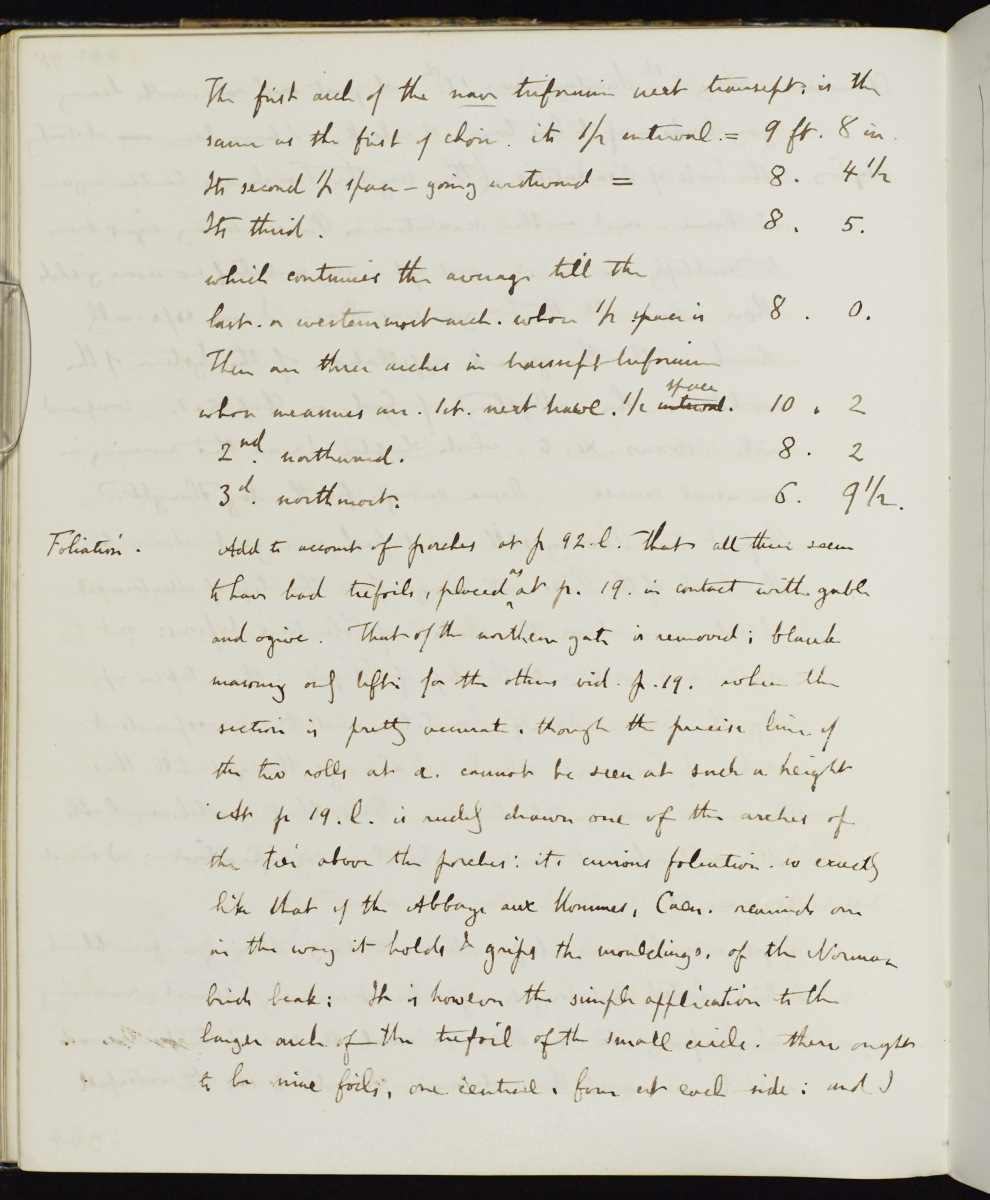 The first arch of the nave triforium next transept. is the
same as the first of choir. its 1/2 interval. = 9 ft. 8 in.
Its second 1/2 space – going westward = 8. 4 1/2
Its third. 8. 5.
which continues the average till the
last. or westernmost arch. whose 1/2 space is 8. 0.
Then are three arches in transept triforium
whose measures are. 1st. next nave. 1/2 interval. space 10. 2
2nd. northward. 8. 2
3d. northmost. 6. 9 1/2.
Foliation. Add to account of porches at p 92.l. That all three seem
to have had trefoils, placed as at p. 19. in contact with gable
and ogive. That of the northern gate is removed; blank
masonry only left: for the others vid. p. 19. where the
section is pretty accurate, though the precise line of
the two rolls at a. cannot be seen at such a height
At p 19.l. is rudely drawn one of the arches of
the tier above the porches: its curious foliation. so exactly
like that of the Abbaye aux Hommes, Caen. reminds one
in the way it holds & grips the mouldings, of the Norman
birds beak: It is however the simple application to the
larger arch of the trefoil of the small circle. there ought
to be nine foils, one central, four at each side: and I